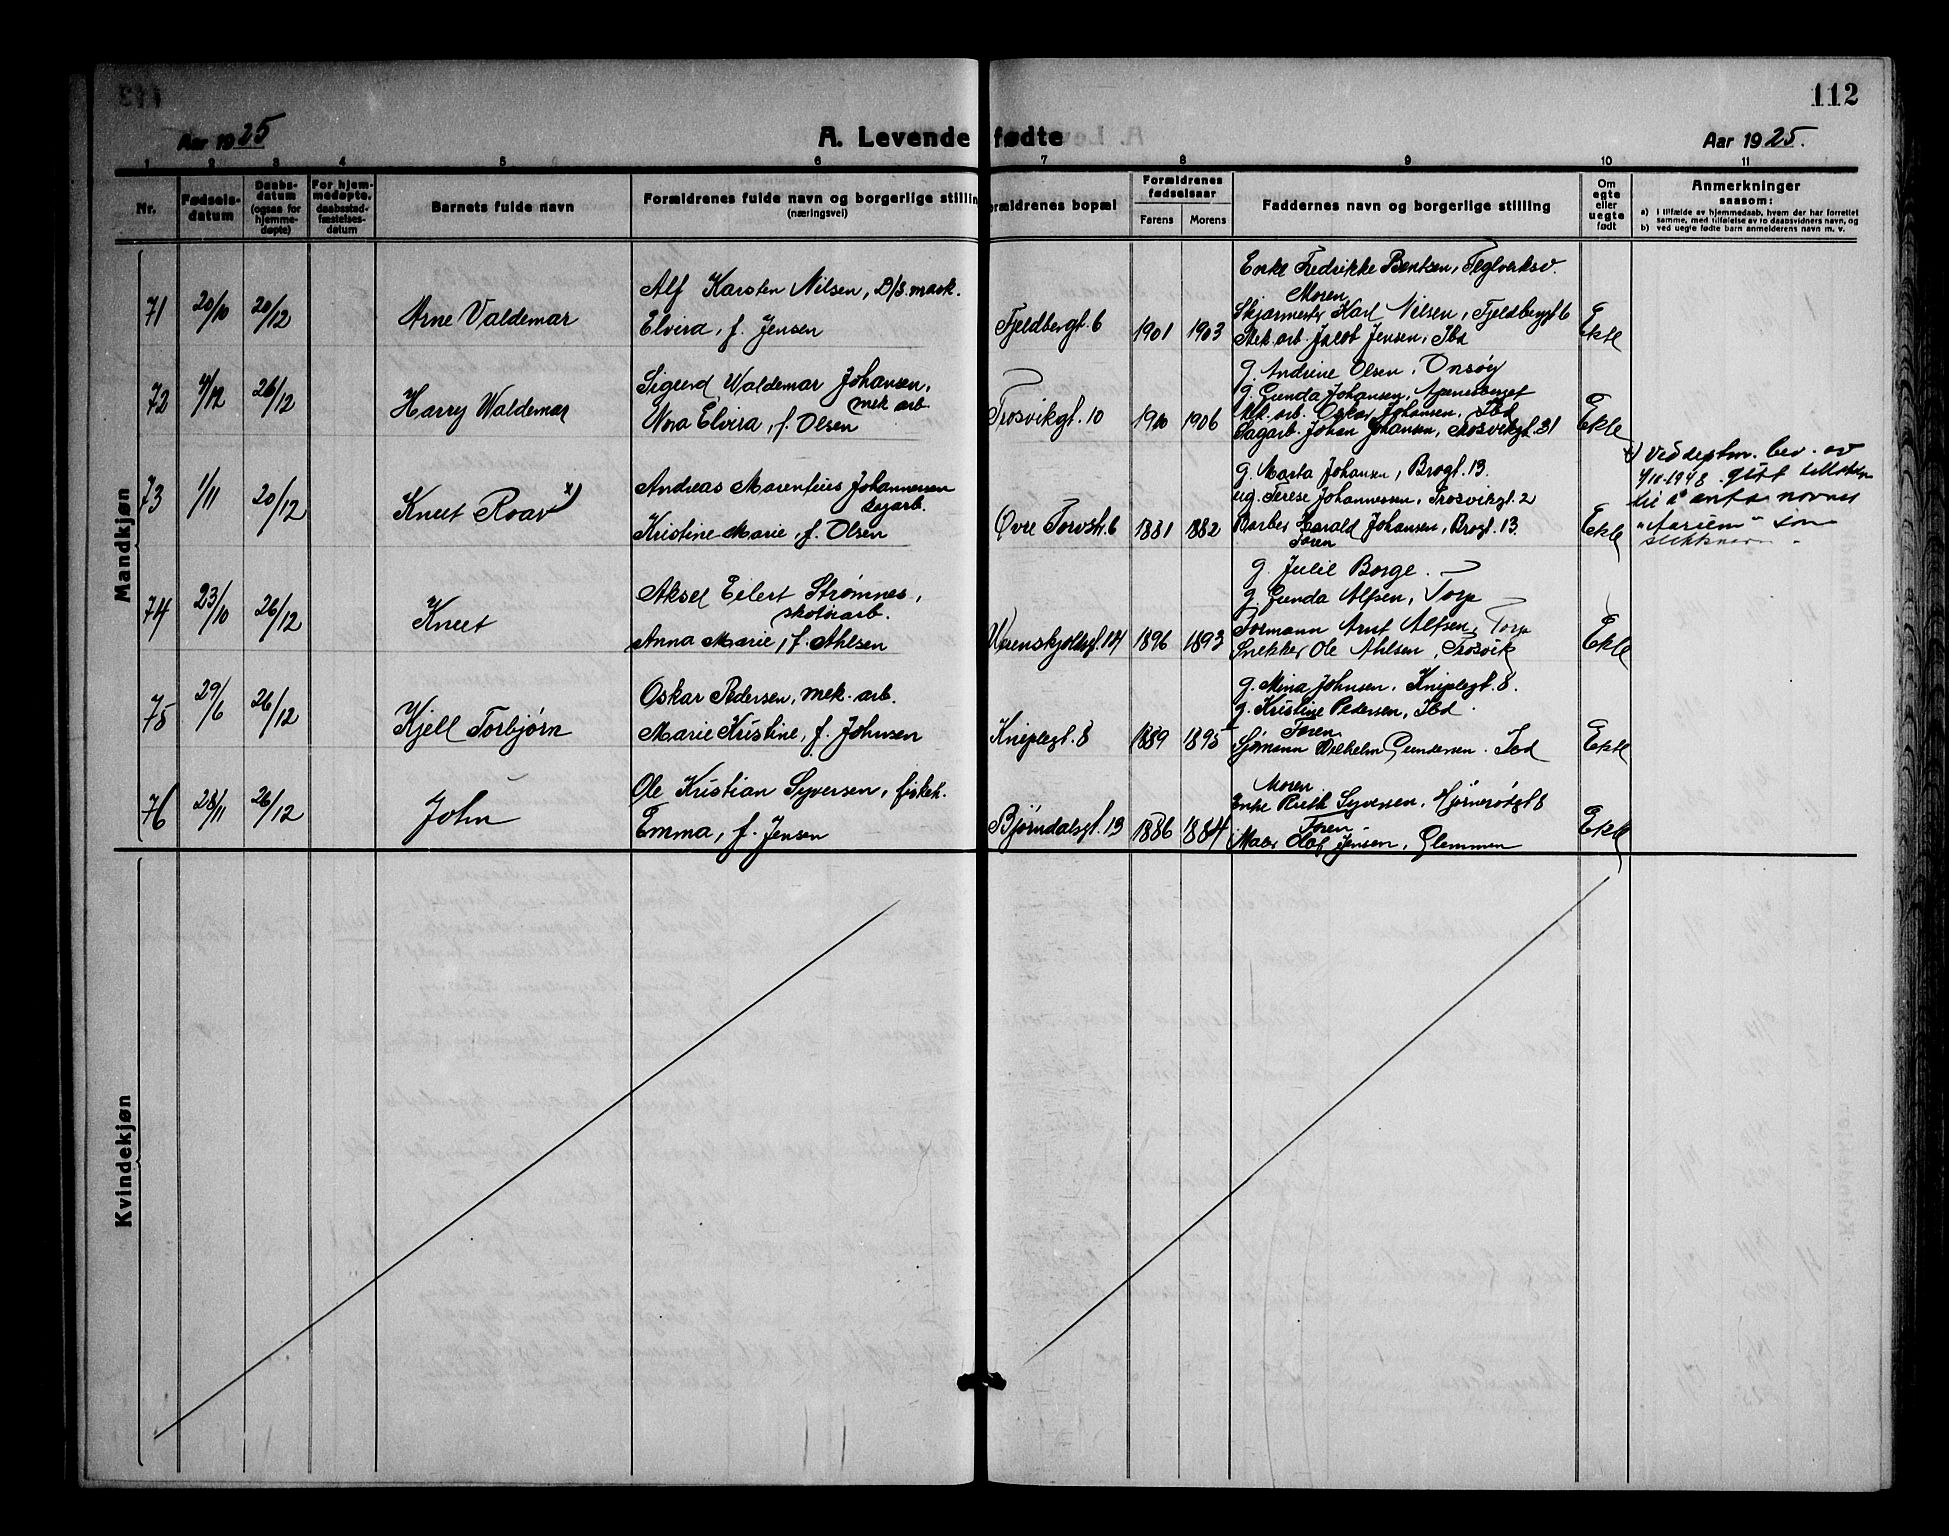 112
Aar 1925
A. Levendefødte
Aar 1925.
1 2 3 4 5 6 7 8 9 10 11
Nr.
Fødsels-
datum
Daabs-
datum
(ogsaa for
hjemme-
døpte)
For hjem-
medøpte,
daabsstad-
fæstelses-
datum
Barnets fulde navn
Forældrenes fulde navn og borgerlige stilling
(næringsvei)
Forældrenes bopæl
Forældrenes
fødselsaar
Farens Morens
Faddernes navn og borgerlige stilling
Om
egte
eller
uegte
født
Anmerkninger
saasom:
a) i tilfælde av hjemmedaab, hvem der har forrettet
samme, med tilføielse av to daabsvidners navn, og
b) ved uegte fødte barn anmelderens navn m. v.
Mandkjøn
71 20/10 20/12
Arne Valdemar
Alf Karsten Nilsen, D/S. mask.
Elvira, f. Jensen
Fjeldbergt. 6
1901 1903
Enke Fredrikke Bentsen, Teglverksv.
Moren
Karl Nilsen, Fjeldbergt 6
Mek. arb. Jacob Jensen, Ibd
Ekte
72 4/12 26/12
Harry Waldemar
Sigurd Waldemar Johansen,
mek arb
Nora Elvira, f. Olsen
Trosvikgt. 10
1900 1906
g. Andrine Olsen, Onsøy
g. Gunda Johansen, Apenesberget
Mek. arb. Oskar Johansen, Ibd
Sagarb. Johan Johansen, Trosvikgt. 31
Ekte
73 1/11 20/12
Knut Roar x)
Andreas Marentius Johannessen
sagarb.
Kristine Marie, f. Olsen
Øvre Torvstr. 6
1881 1882
g. Marta Johansen, Brogt. 13.
ug. Terese Johannessen, Trosvikgt. 2
Barber Harald Johansen, Brogt. 13
Faren
Ekte
x) Ved deptm. bev. av
4/10-1948 gitt tillatelse
til å anta navnet
"Aarum" som
slektsnavn.
74 23/10 26/12
Knut
Aksel Eilert Strømnes,
skotøiarb.
Anna Marie, f. Ahlsen
Werenskjoldsgt. 14
1896 1893
g. Julie Borge.
g. Gunda Alfsen, Torp
Formann Arnt Alfsen, Torp
Snekker Ole Ahlsen, Trosvik
Ekte
75 29/6 26/12
Kjell Torbjørn
Oskar Pedersen, mek. arb.
Marie Kristine, f. Johnsen
Kniplegt. 8
1889 1895
g. Mina Johnsen, Kniplegt. 8.
g. Kristine Pedersen, Ibd.
Faren
Sjømann Vilhelm Gundersen. Ibd
Ekte
76 28/11 26/12
John
Ole Kristian Syversen, fiskeh.
Emma, f. Jensen
Bjørndalsgt. 13
1886 1884
Moren
Enke Ruth Syversen, Hjørnerødgt 8
Faren
Maler Olaf Jensen, Glemmen
Ekte
Kvindekjøn